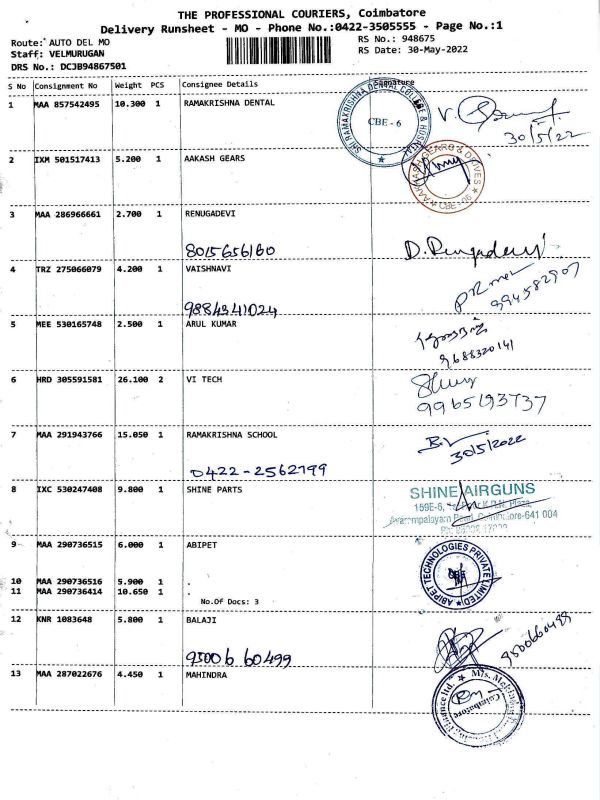 THE PROFESSIONAL COURIERS, Coimbatore
Delivery Runsheet - MO - Phone No.:0422-3505555 - Page No.:1
Route: AUTO DEL MO
RS No.: 948675
Staff: VELMURUGAN
RS Date: 30-May-2022
DRS No.: DCJB94867501
S No Consignment No Weight PCS Consignee Details Signature
1 MAA 857542495 10.300 1 RAMAKRISHNA DENTAL
SRI RAMAKRISHNA DENTAL COLLEGE & HOSPITAL
CBE - 6
30/5/22
2 IXM 501517413 5.200 1 AAKASH GEARS
AAKASH GEARS & DRIVES
CBE-06
3 MAA 286966661 2.700 1 RENUGADEVI
8015656160
D. Rengadevi
4 TRZ 275066079 4.200 1 VAISHNAVI
9884341024
994582907
5 MEE 530165748 2.500 1 ARUL KUMAR
9688320141
6 HRD 305591581 26.100 2 VI TECH
9965193737
7 MAA 291943766 15.050 1 RAMAKRISHNA SCHOOL
0422-2562799
30/5/2022
8 IXC 530247408 9.800 1 SHINE PARTS
SHINE AIRGUNS
159E-6, Plaza,
Avarampalayam Road, Coimbatore-641 004
9 MAA 290736515 6.000 1 ABIPET
ABIPET TECHNOLOGIES PRIVATE LIMITED
CBE
10 MAA 290736516 5.900 1 .
11 MAA 290736414 10.650 1 .
No.Of Docs: 3
12 KNR 1083648 5.800 1 BALAJI
9500660499
9500660499
13 MAA 287022676 4.450 1 MAHINDRA
Coimbatore